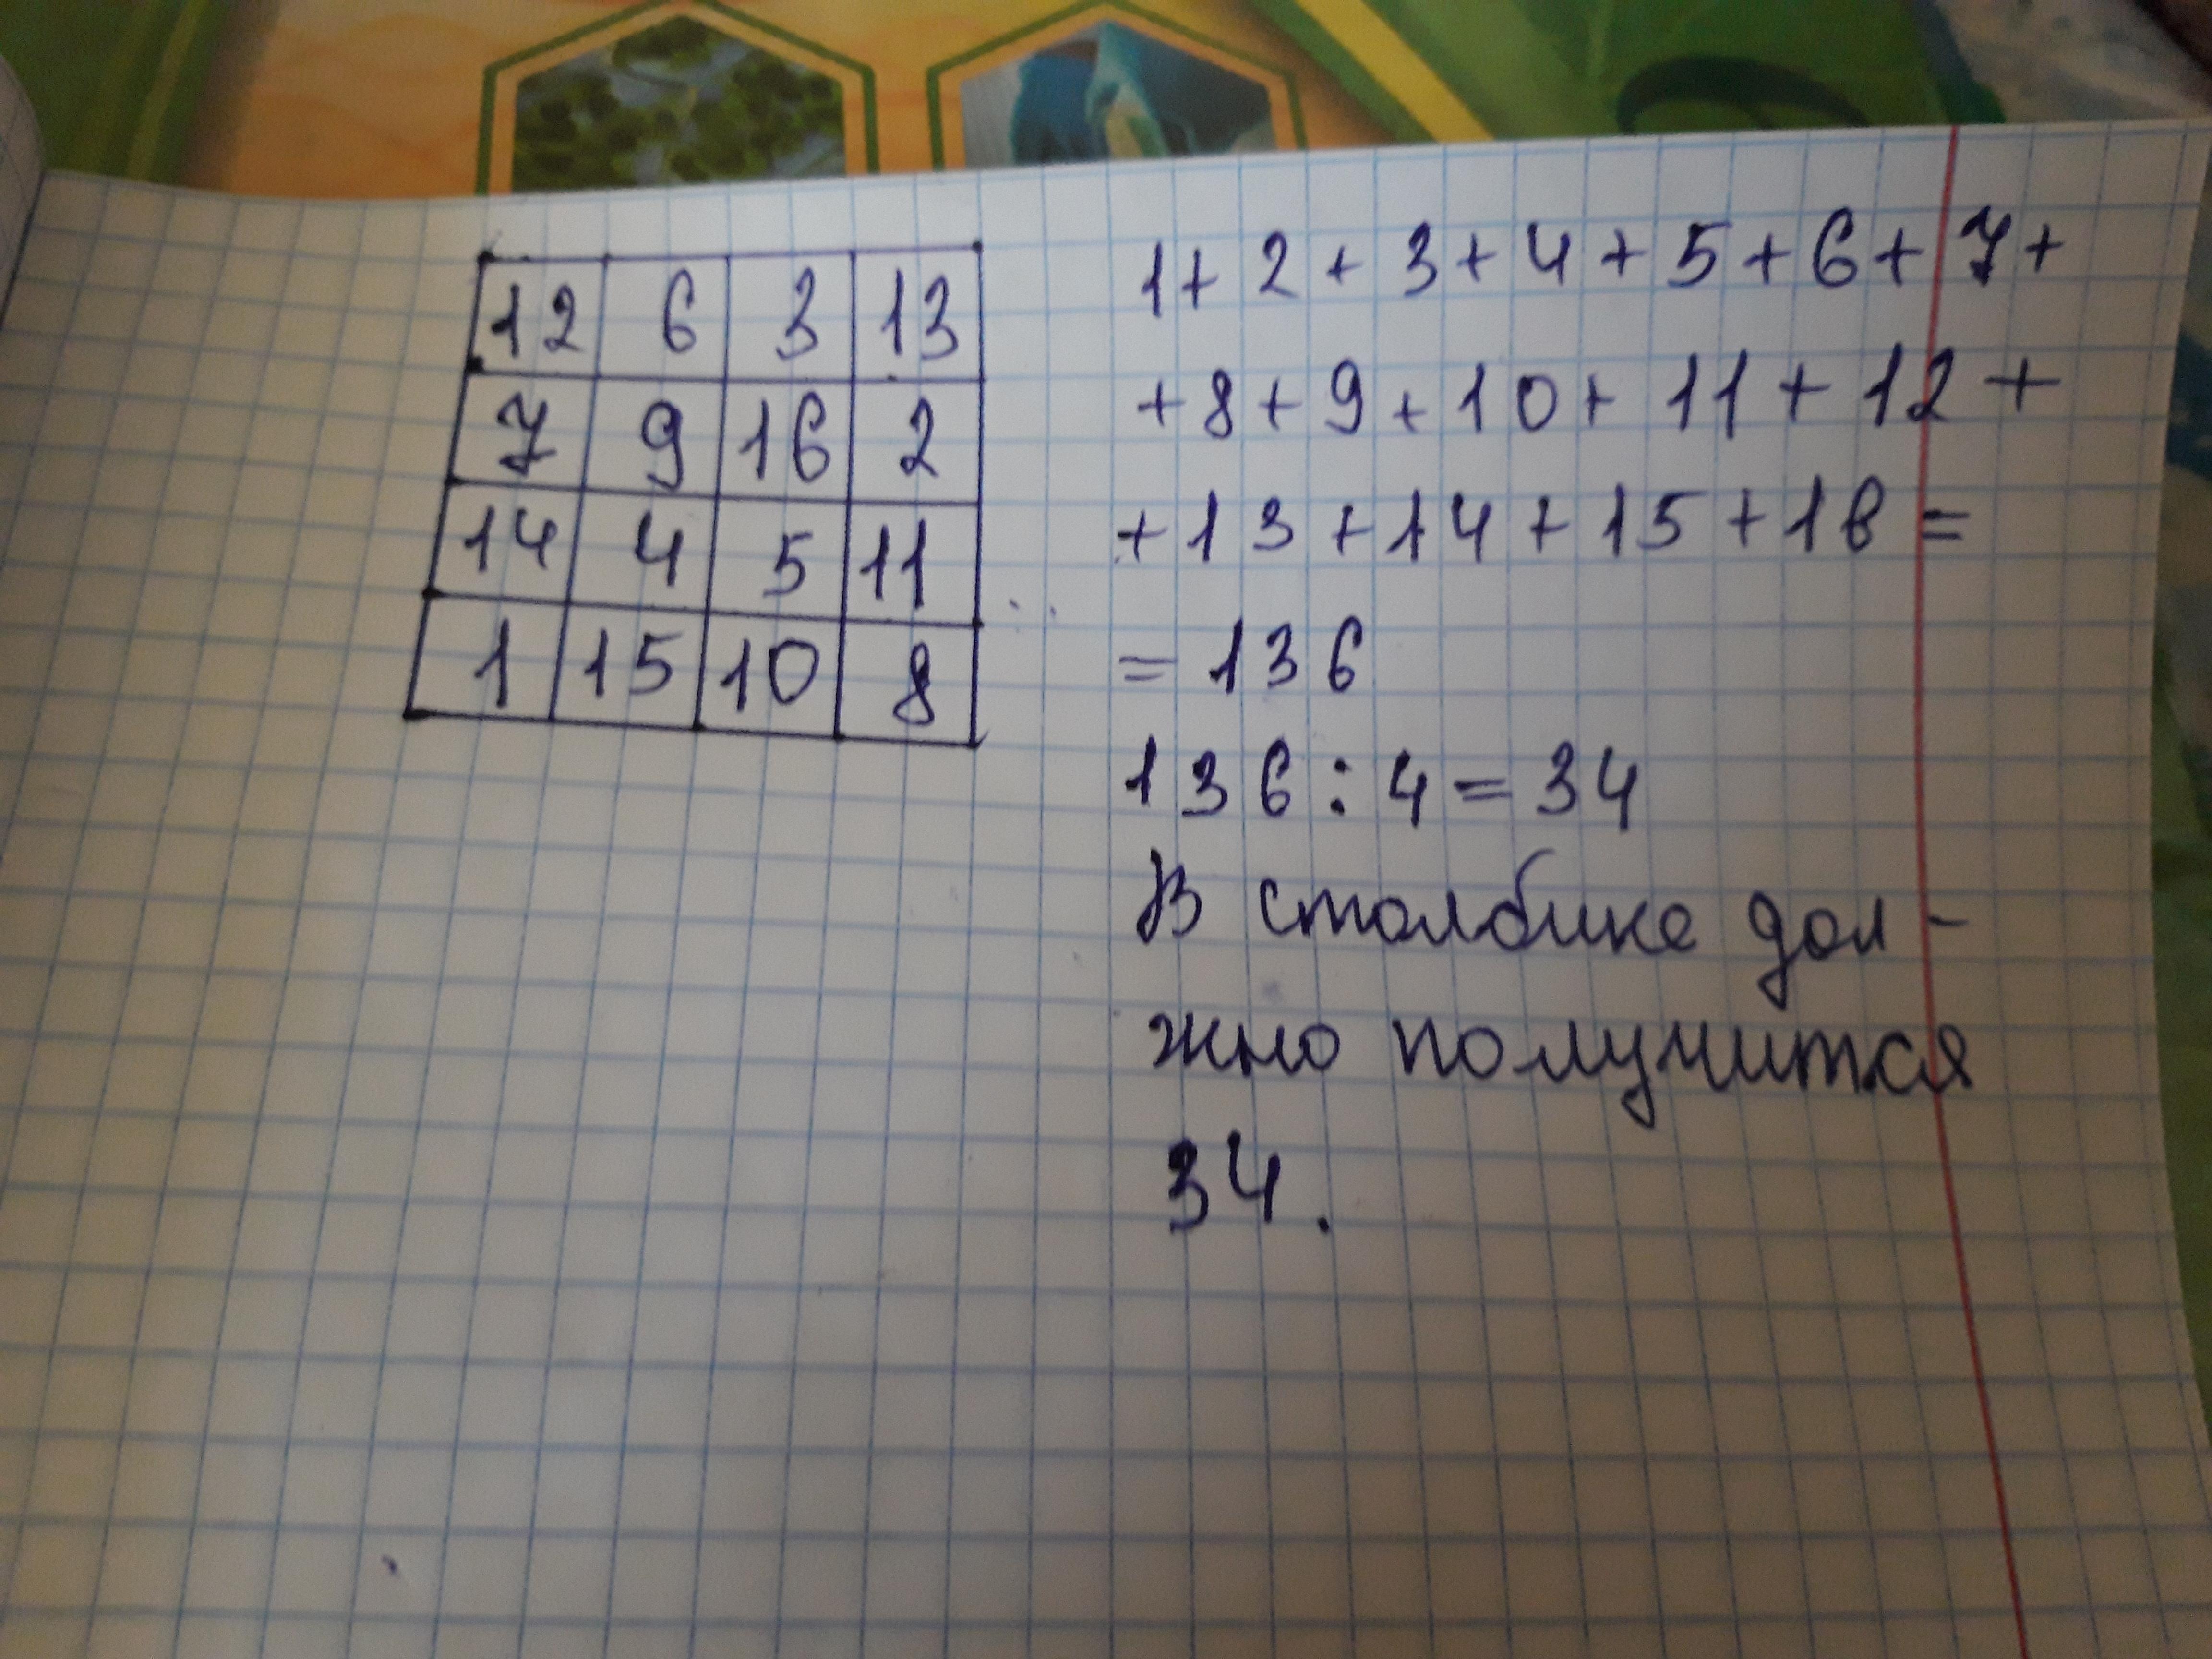 12 6 3 13
7 9 16 2
14 4 5 11
1 15 10 8
1+2+3+4+5+6+7+
+8+9+10+11+12+
+13+14+15+16=
=136
136:4=34
В столбике дол-
жно получится
34.